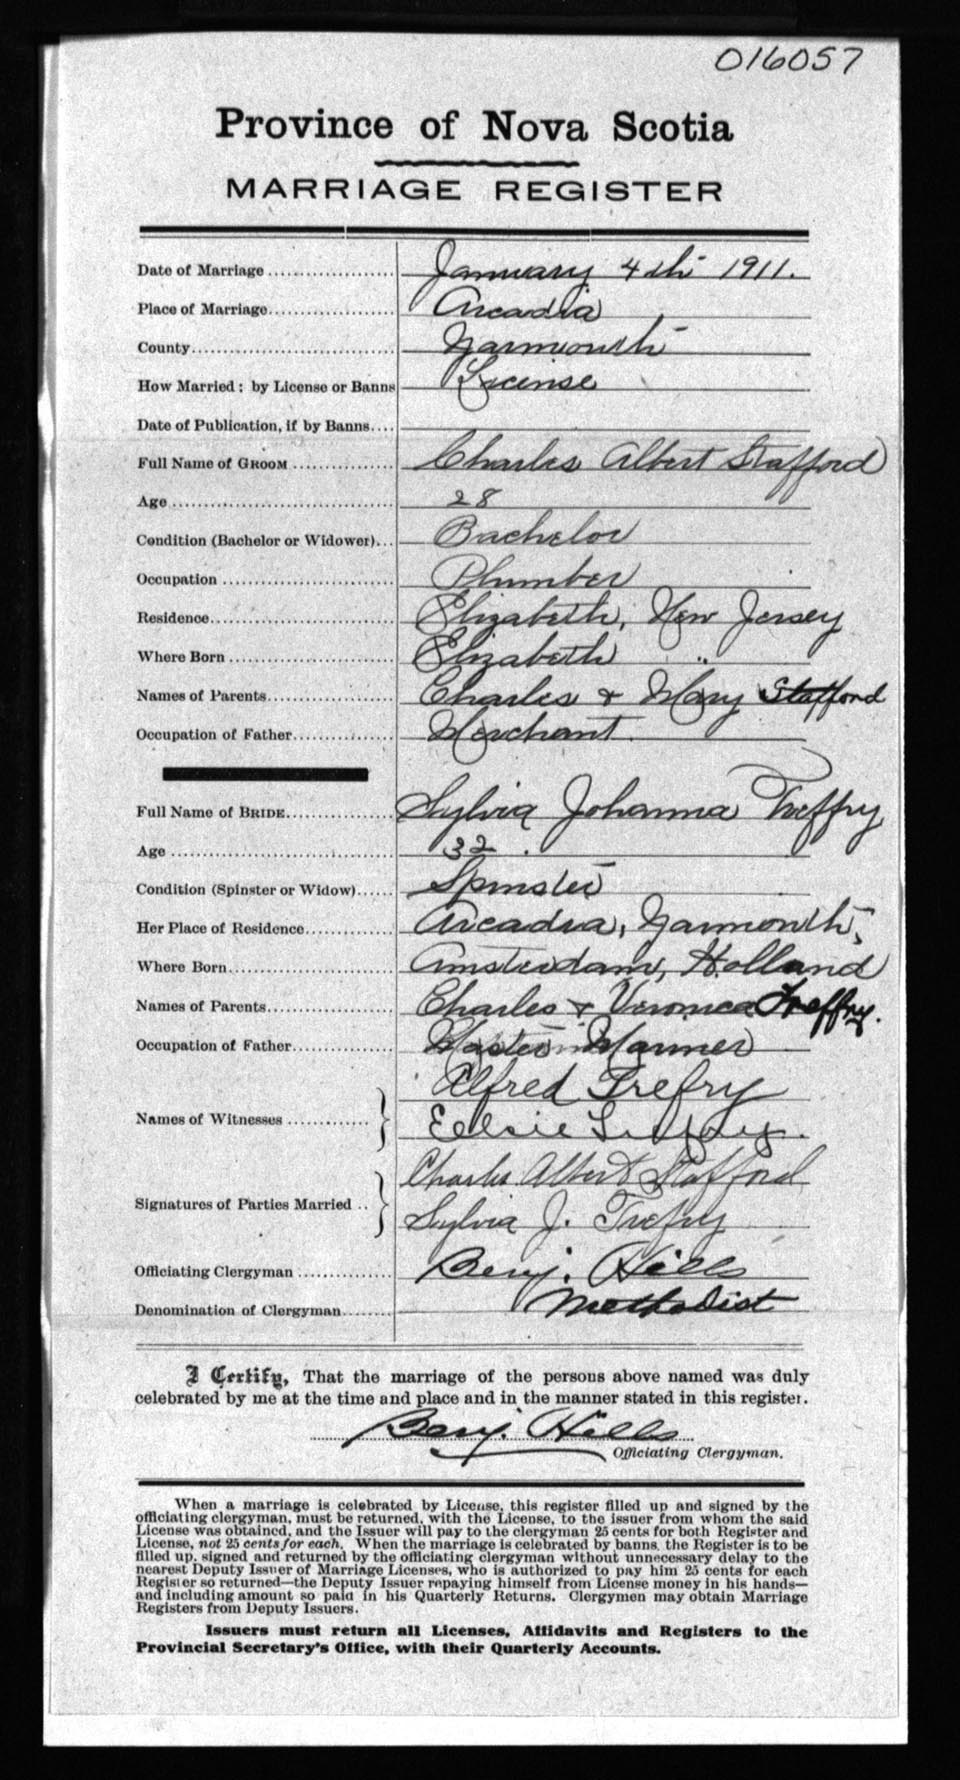 016057
Province of Nova Scotia
MARRIAGE REGISTER
Date of Marriage.................... January 4th 1911.
Place of Marriage.................... Arcadia
County.................... Yarmouth
How Married: by License or Banns License
Date of Publication, if by Banns....
Full Name of GROOM .................... Charles Albert Stafford
Age .................... 28
Condition (Bachelor or Widower)... Bachelor
Occupation .................... Plumber
Residence.................... Elizabeth, New Jersey
Where Born .................... Elizabeth "
Names of Parents.................... Charles & Mary Stafford
Occupation of Father.................... Merchant.
Full Name of BRIDE.................... Sylvia Johanna Treffry
Age .................... 32.
Condition (Spinster or Widow)...... Spinster
Her Place of Residence.............. Arcadia, Yarmouth,
Where Born.................... Amsterdam, Holland
Names of Parents.................... Charles & Veronica Treffry.
Occupation of Father.................... Master Mariner
Alfred Trefry
Names of Witnesses .............
Elsie Trefry.
Charles Albert Stafford
Signatures of Parties Married ..
Sylvia J. Trefry
Officiating Clergyman .............. Benj. Hills
Denomination of Clergyman....... Methodist
I Certify, That the marriage of the persons above named was duly
celebrated by me at the time and place and in the manner stated in this register.
Benj. Hills
Officiating Clergyman.
When a marriage is celebrated by License, this register filled up and signed by the
officiating clergyman, must be returned, with the License, to the issuer from whom the said
License was obtained, and the Issuer will pay to the clergyman 25 cents for both Register and
License, not 25 cents for each. When the marriage is celebrated by banns, the Register is to be
filled up, signed and returned by the officiating clergyman without unnecessary delay to the
nearest Deputy Issuer of Marriage Licenses, who is authorized to pay him 25 cents for each
Register so returned—the Deputy Issuer repaying himself from License money in his hands—
and including amount so paid in his Quarterly Returns. Clergymen may obtain Marriage
Registers from Deputy Issuers.
Issuers must return all Licenses, Affidavits and Registers to the
Provincial Secretary's Office, with their Quarterly Accounts.